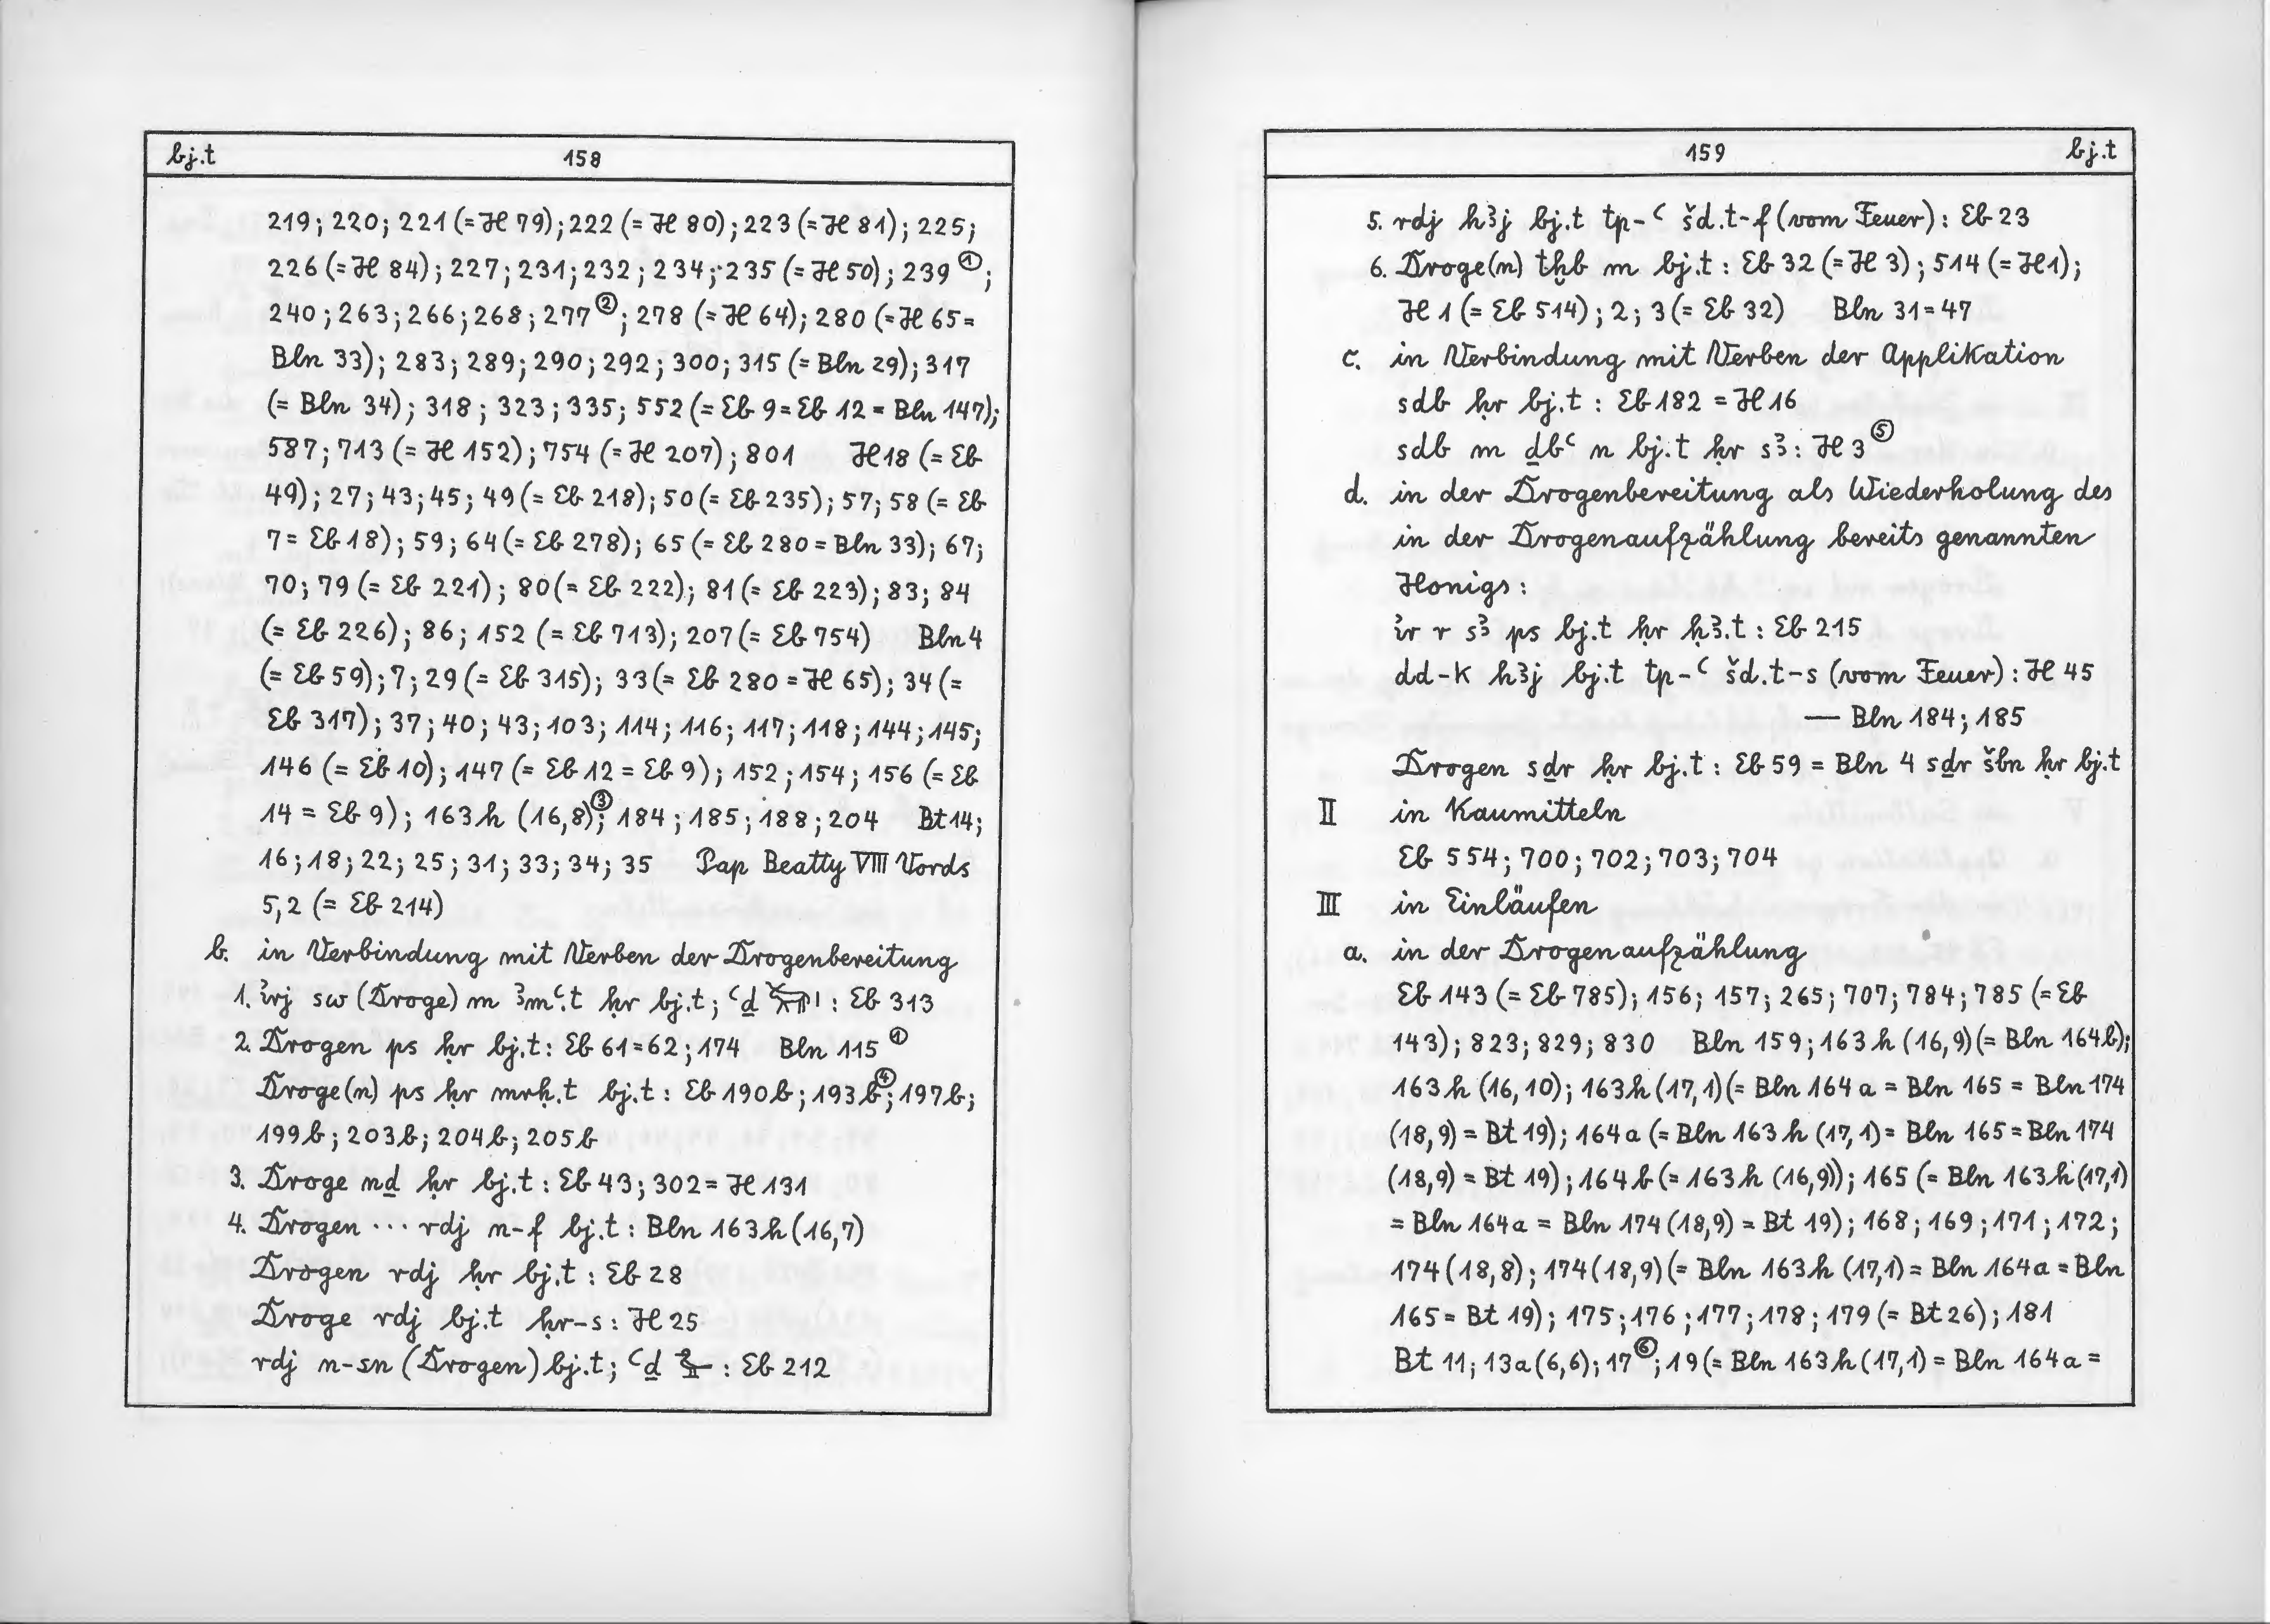 bj.t 158
219; 220; 221 (= H 79); 222 (= H 80); 223 (= H 81); 225;
226 (= H 84); 227; 231; 232; 234; 235 (= H 50); 239 ①;
240; 263; 266; 268; 277 ②; 278 (= H 64); 280 (= H 65 =
Bln 33); 283; 289; 290; 292; 300; 315 (= Bln 29); 317
(= Bln 34); 318; 323; 335; 552 (= Eb 9 = Eb 12 = Bln 147);
587; 713 (= H 152); 754 (= H 207); 801 H 18 (= Eb
49); 27; 43; 45; 49 (= Eb 218); 50 (= Eb 235); 57; 58 (= Eb
7 = Eb 18); 59; 64 (= Eb 278); 65 (= Eb 280 = Bln 33); 67;
70; 79 (= Eb 221); 80 (= Eb 222); 81 (= Eb 223); 83; 84
(= Eb 226); 86; 152 (= Eb 713); 207 (= Eb 754) Bln 4
(= Eb 59); 7; 29 (= Eb 315); 33 (= Eb 280 = H 65); 34 (=
Eb 317); 37; 40; 43; 103; 114; 116; 117; 118; 144; 145;
146 (= Eb 10); 147 (= Eb 12 = Eb 9); 152; 154; 156 (= Eb
14 = Eb 9); 163 h (16,8) ③; 184; 185; 188; 204 Bt 14;
16; 18; 22; 25; 31; 33; 34; 35 Pap Beatty VIII Vords
5,2 (= Eb 214)
b. in Verbindung mit Verben der Drogenbereitung
1. ꞽrj sw (Droge) m ꜣmꜥ.t ḥr bj.t; ꜥḏ : Eb 313
2. Drogen ps ḥr bj.t: Eb 61 = 62; 174 Bln 115 ①
Droge(n) ps ḥr mrḥ.t bj.t: Eb 190 b; 193 b ④; 197 b;
199 b; 203 b; 204 b; 205 b
3. Droge nḏ ḥr bj.t: Eb 43; 302 = H 131
4. Drogen ... rdj n-f bj.t: Bln 163 h (16,7)
Drogen rdj ḥr bj.t: Eb 28
Droge rdj bj.t ḥr-s: H 25
rdj n-sn (Drogen) bj.t; ꜥḏ : Eb 212
159 bj.t
5. rdj hꜣj bj.t tp-ꜥ šd.t-f (vom Feuer): Eb 23
6. Droge(n) tḫb m bj.t: Eb 32 (= H 3); 514 (= H 1);
H 1 (= Eb 514); 2; 3 (= Eb 32) Bln 31 = 47
c. in Verbindung mit Verben der Applikation
sdb ḥr bj.t: Eb 182 = H 16
sdb m ḏbꜥ n bj.t ḥr sꜣ: H 3 ⑤
d. in der Drogenbereitung als Wiederholung des
in der Drogenaufzählung bereits genannten
Honigs:
ꞽr r sꜣ ps bj.t ḥr ḥꜣ.t: Eb 215
dd-k hꜣj bj.t tp-ꜥ šd.t-s (vom Feuer): H 45
— Bln 184; 185
Drogen sḏr ḥr bj.t: Eb 59 = Bln 4 sḏr šbn ḥr bj.t
II in Kaumitteln
Eb 554; 700; 702; 703; 704
III in Einläufen
a. in der Drogenaufzählung
Eb 143 (= Eb 785); 156; 157; 265; 707; 784; 785 (= Eb
143); 823; 829; 830 Bln 159; 163 h (16,9) (= Bln 164 b);
163 h (16,10); 163 h (17,1) (= Bln 164 a = Bln 165 = Bln 174
(18,9) = Bt 19); 164 a (= Bln 163 h (17,1) = Bln 165 = Bln 174
(18,9) = Bt 19); 164 b (= 163 h (16,9)); 165 (= Bln 163 h (17,1)
= Bln 164 a = Bln 174 (18,9) = Bt 19); 168; 169; 171; 172;
174 (18,8); 174 (18,9) (= Bln 163 h (17,1) = Bln 164 a = Bln
165 = Bt 19); 175; 176; 177; 178; 179 (= Bt 26); 181
Bt 11; 13 a (6,6); 17 ⑥; 19 (= Bln 163 h (17,1) = Bln 164 a =